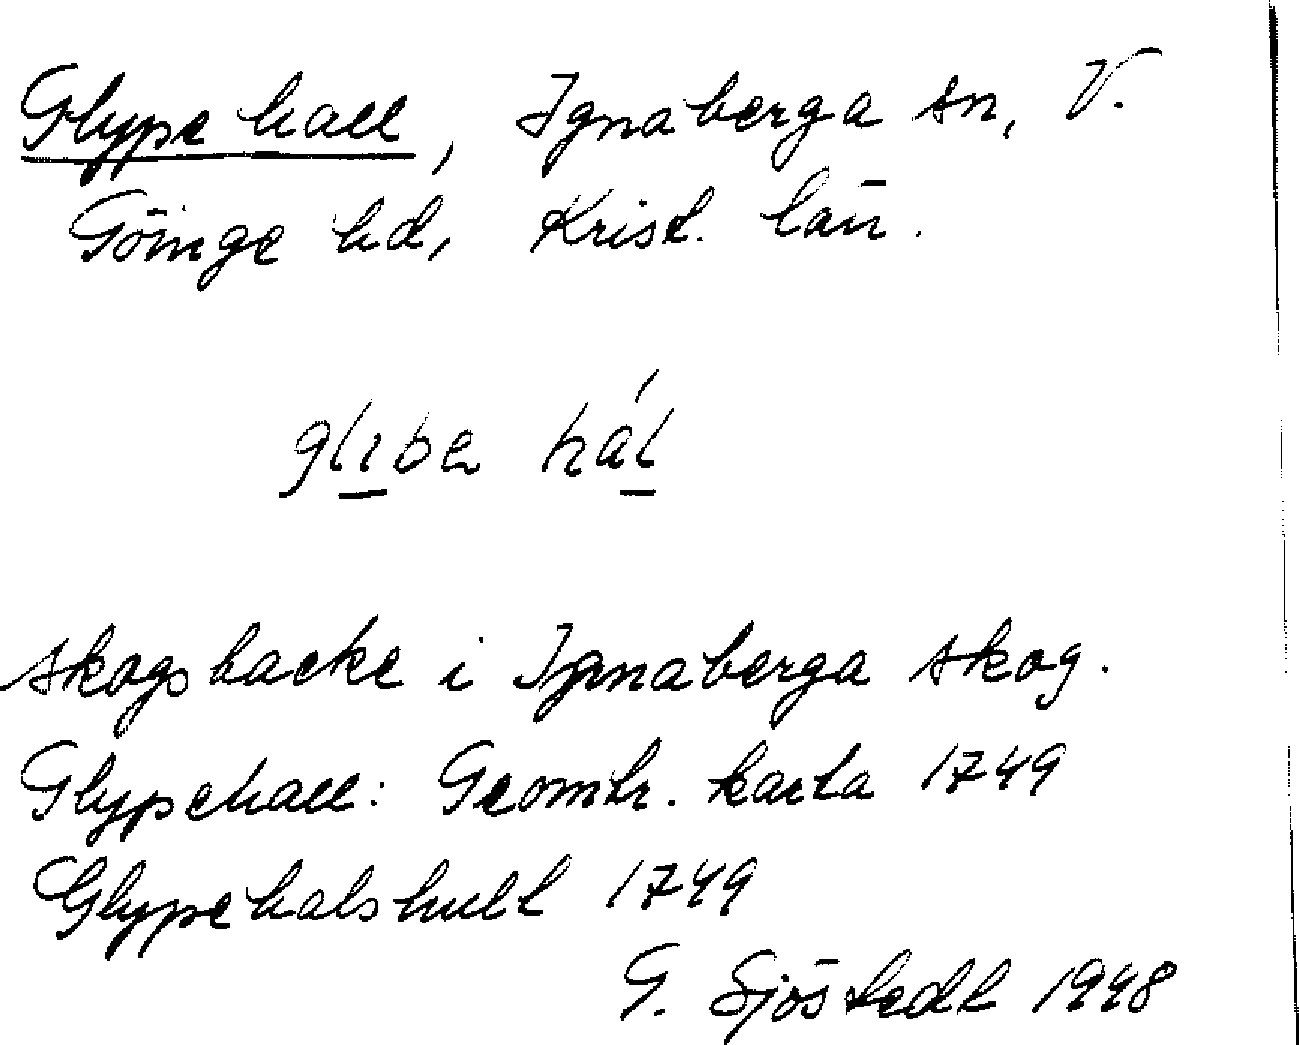 Glype hall, Ignaberga sn, V.
Göinge hd, Krist. län.
glıbe hál
skogsbacke i Ignaberga skog.
Glypehall: Geomtr. karta 1749
Glypehalshult 1749
G. Sjöstedt 1948